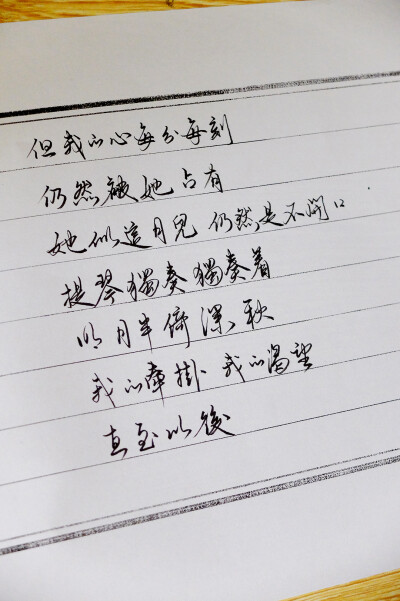 但我的心每分每刻
仍然被她占有
她似這月兒 仍然是不開口
提琴獨奏獨奏着
明月半倚深秋
我的牽掛 我的渴望
直至以後